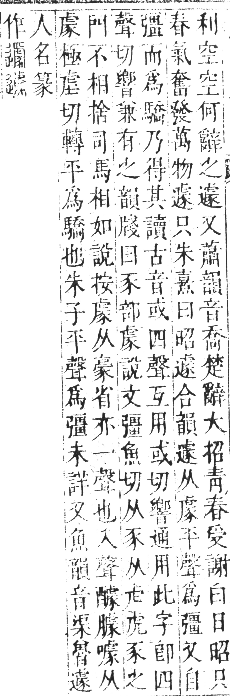 利空空何辭之遽又蕭韻音喬楚辭大招青春受謝白日昭只
春氣奮發萬物遽只朱熹曰昭遽合韻遽从豦平聲爲彊又自
彊而爲驕乃得其讀古音或四聲互用或切響通用此字卽四
聲切響兼有之韻牋曰豕部豦說文彊魚切从豕从虍虎豕之
鬥不相捨司馬相如說按豦从豪省亦一聲也入聲醵臄噱从
豦極虐切轉平爲驕也朱子平聲爲彊未詳又魚韻音渠譽遽
人名篆
作